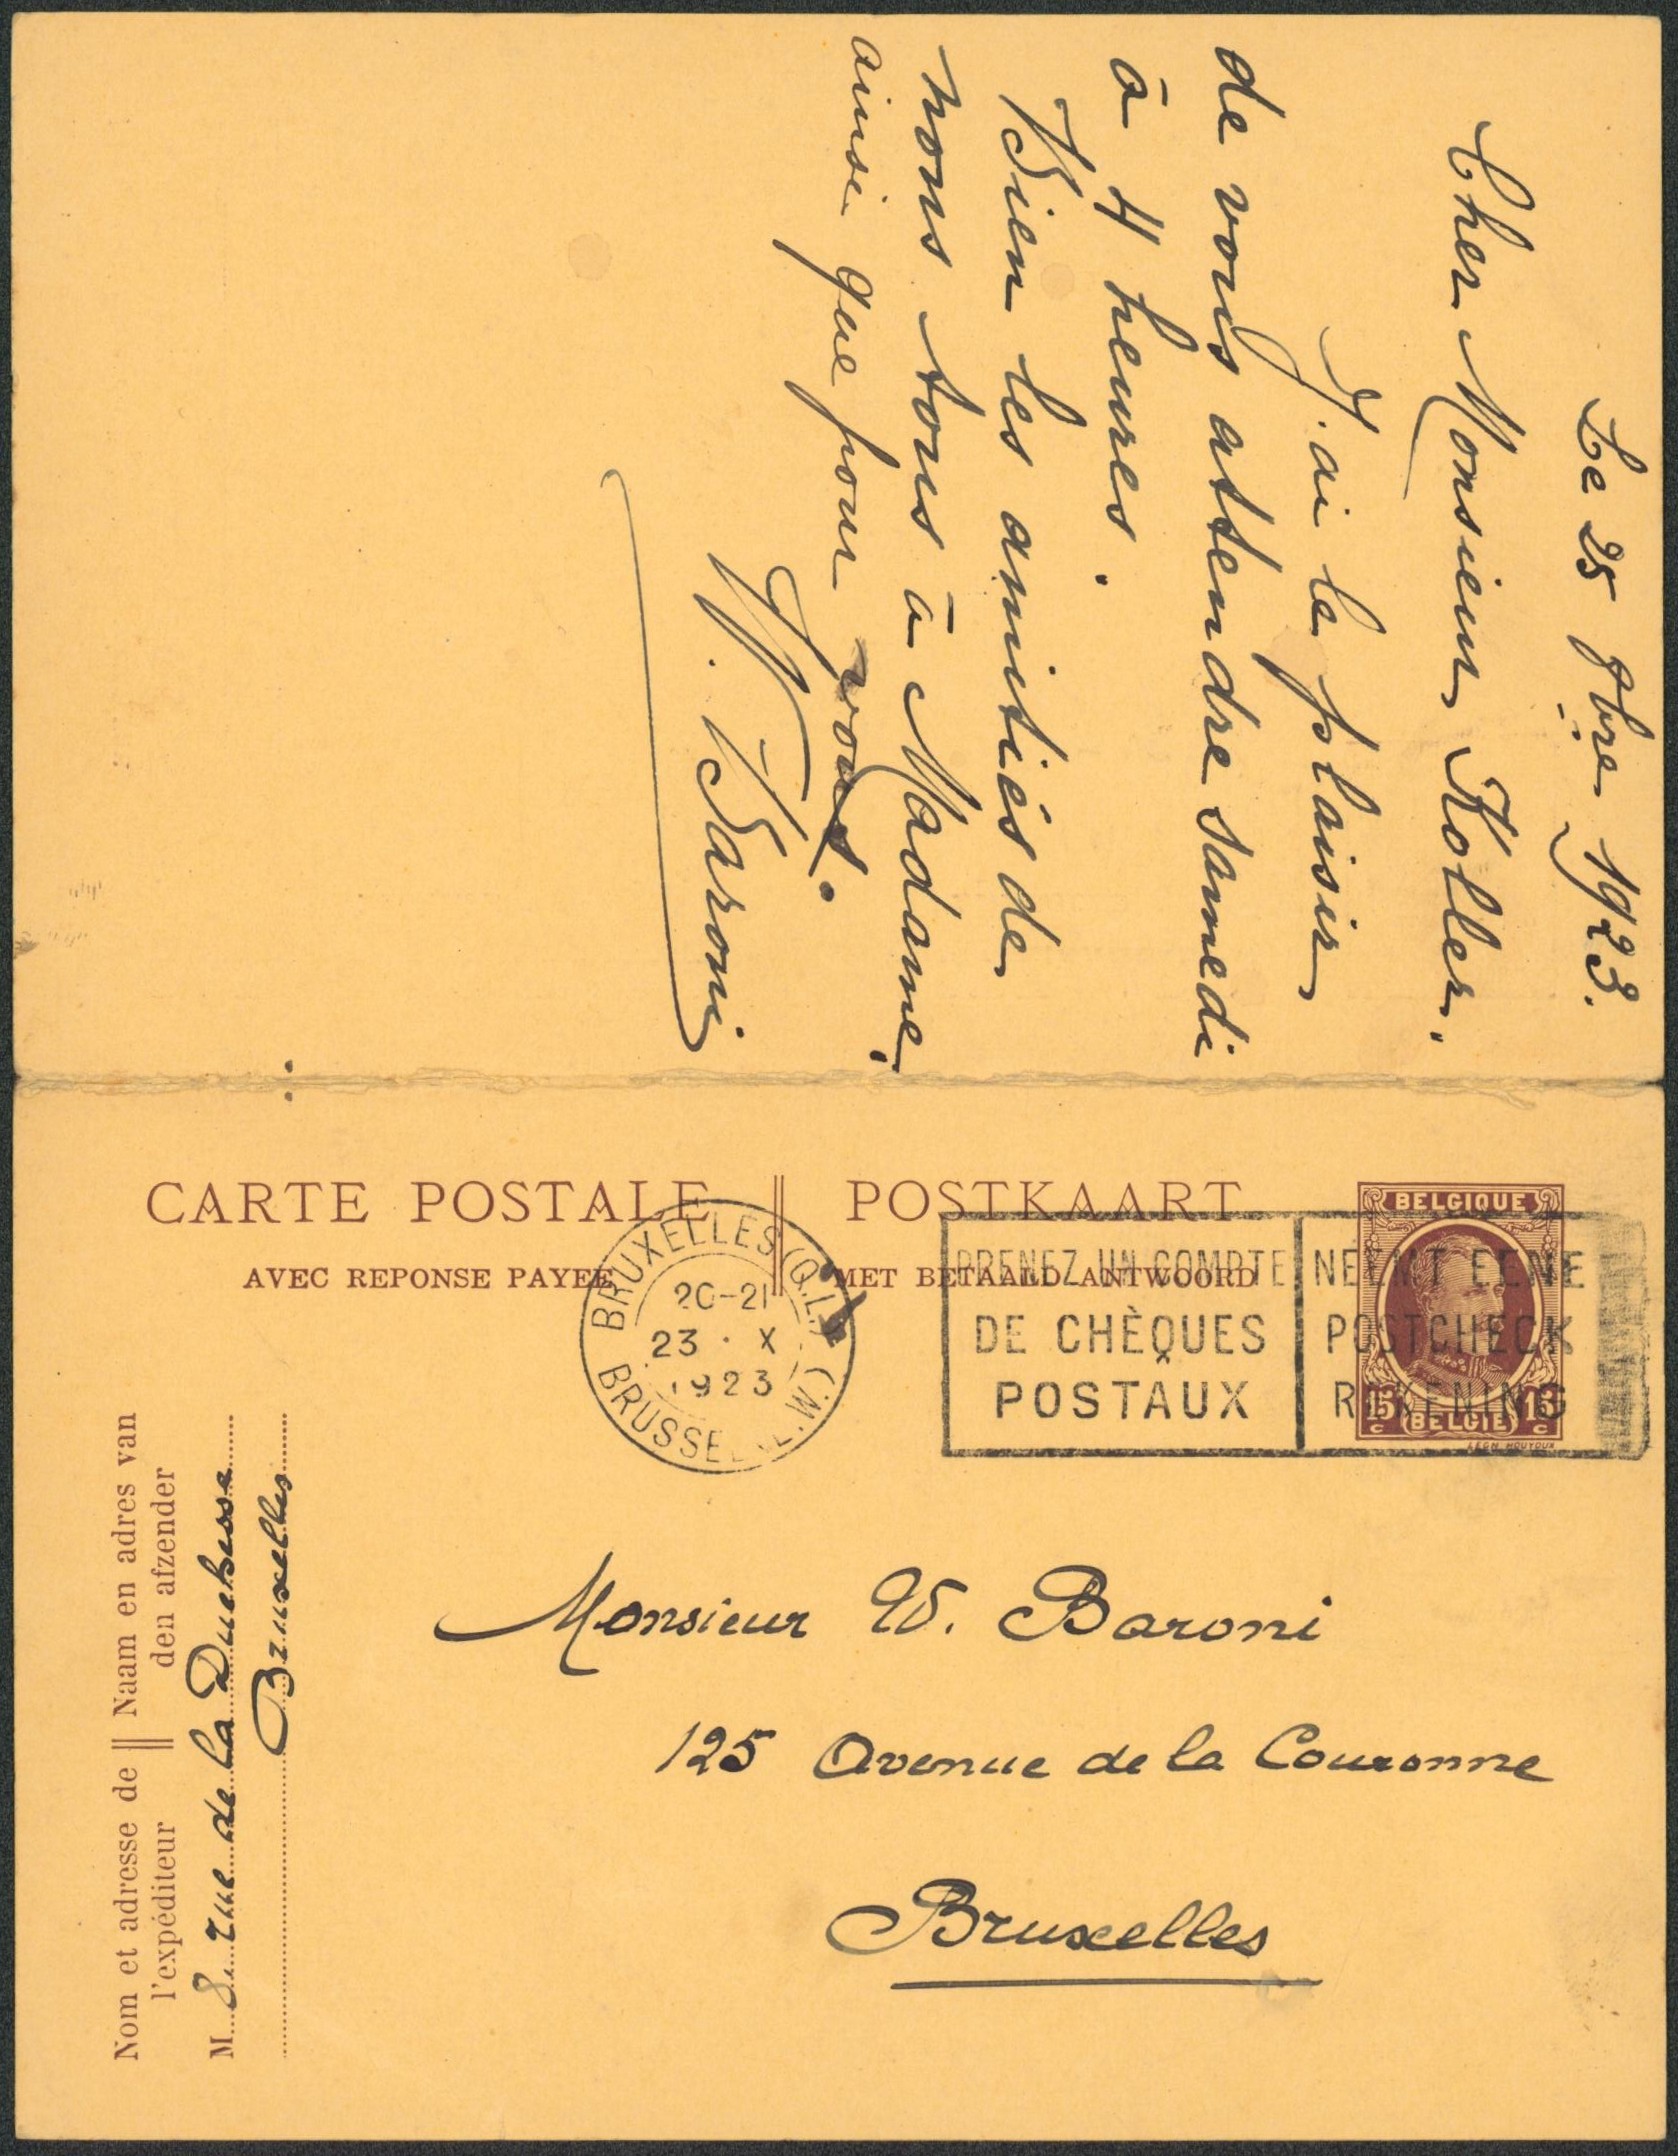 Le 25 8bre 1923.
Cher Monsieur Koller.
J'ai le plaisir
de vous attendre samedi
à 4 heures.
Bien les amitiés de
nous tous à Madame,
ainsi que pour vous.
W. Baroni
CARTE POSTALE POSTKAART
AVEC REPONSE PAYEE MET BETAALD ANTWOORD
BRUXELLES (Q.L.)
20-21
23 · X
1923
BRUSSEL (L.W.)
PRENEZ UN COMPTE
DE CHÈQUES
POSTAUX
NEEMT EENE
POSTCHECK
REKENING
BELGIQUE
15 c BELGIË 15 c
LEON HOUYOUX
Nom et adresse de l'expéditeur
Naam en adres van den afzender
M 8. rue de la Duchesse
Bruxelles
Monsieur W. Baroni
125 Avenue de la Couronne
Bruxelles